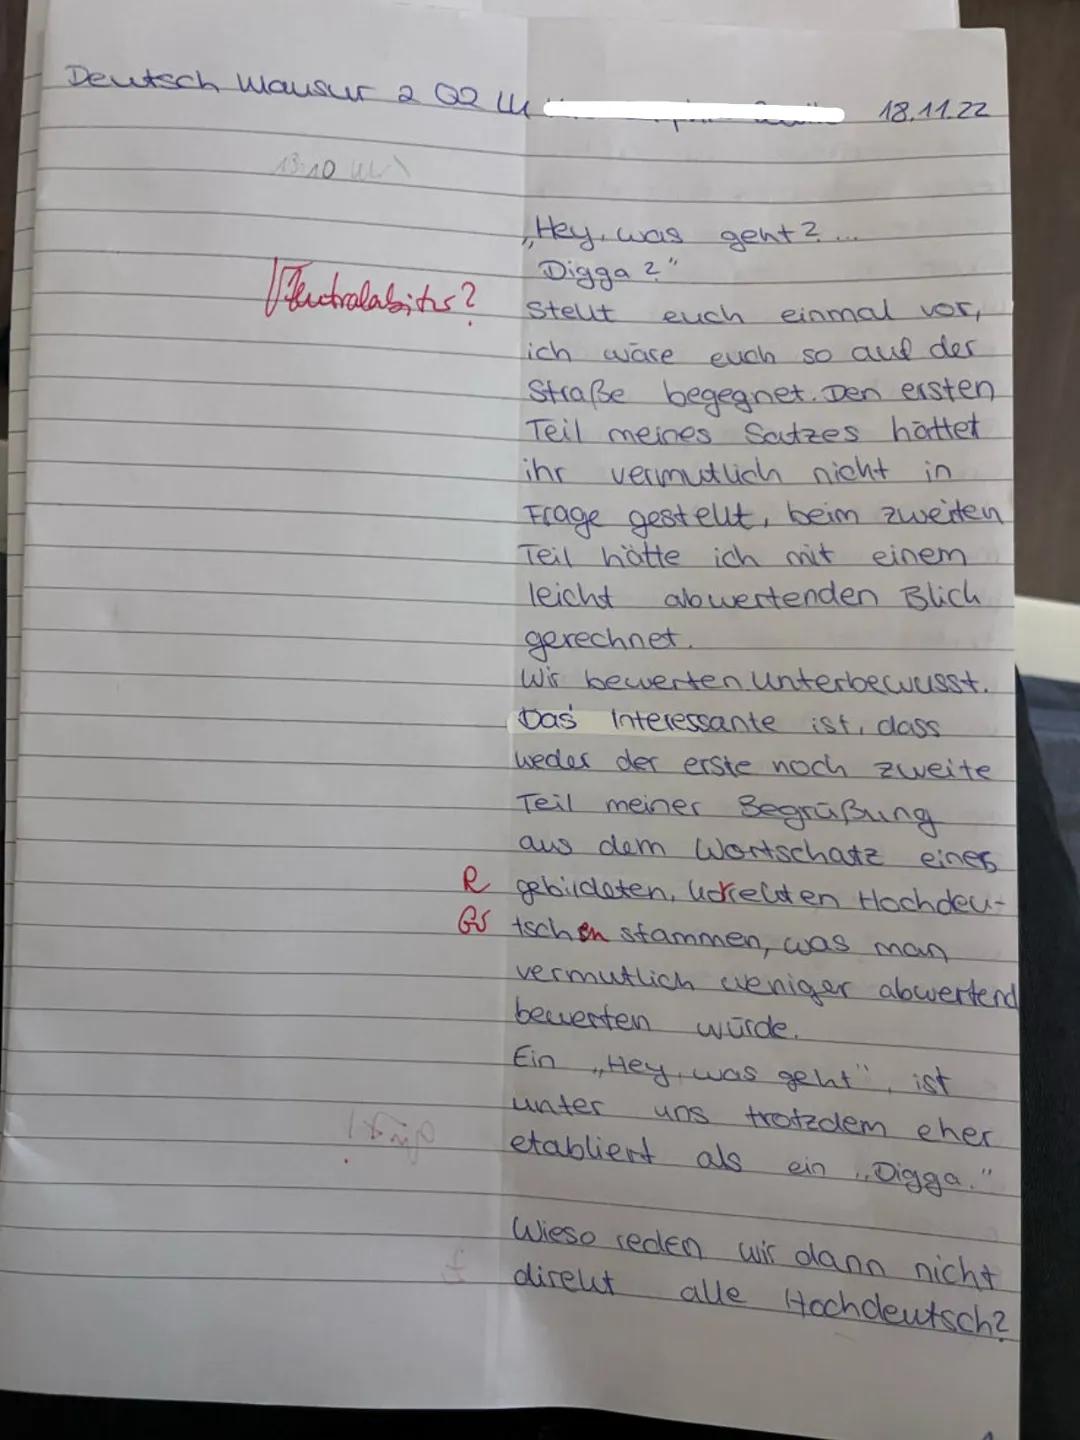 Deutsch Klausur 2 Q2 LK 18.11.22
13:10 Uhr
„Hey, was geht? ...
Digga?"
√ Zentralabitur?
Stellt euch einmal vor,
ich wäre euch so auf der
Straße begegnet. Den ersten
Teil meines Satzes hättet
ihr vermutlich nicht in
Frage gestellt, beim zweiten
Teil hätte ich mit einem
leicht abwertenden Blick
gerechnet.
Wir bewerten. Unterbewusst.
Das Interessante ist, dass
weder der erste noch zweite
Teil meiner Begrüßung
aus dem Wortschatz eines
R gebildeten, korrekten Hochdeu-
Gr tschen stammen, was man
vermutlich weniger abwertend
bewerten würde.
Ein „Hey, was geht", ist
unter uns trotzdem eher
etabliert als ein „Digga."
Wieso reden wir dann nicht
direkt alle Hochdeutsch?